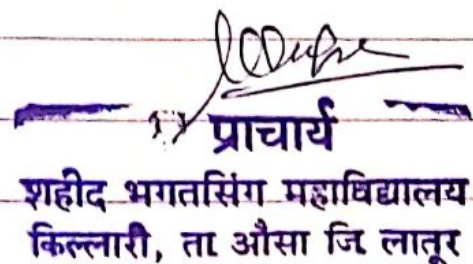 प्राचार्य
शहीद भगतसिंग महाविद्यालय
किल्लारी, ता औसा जि लातूर